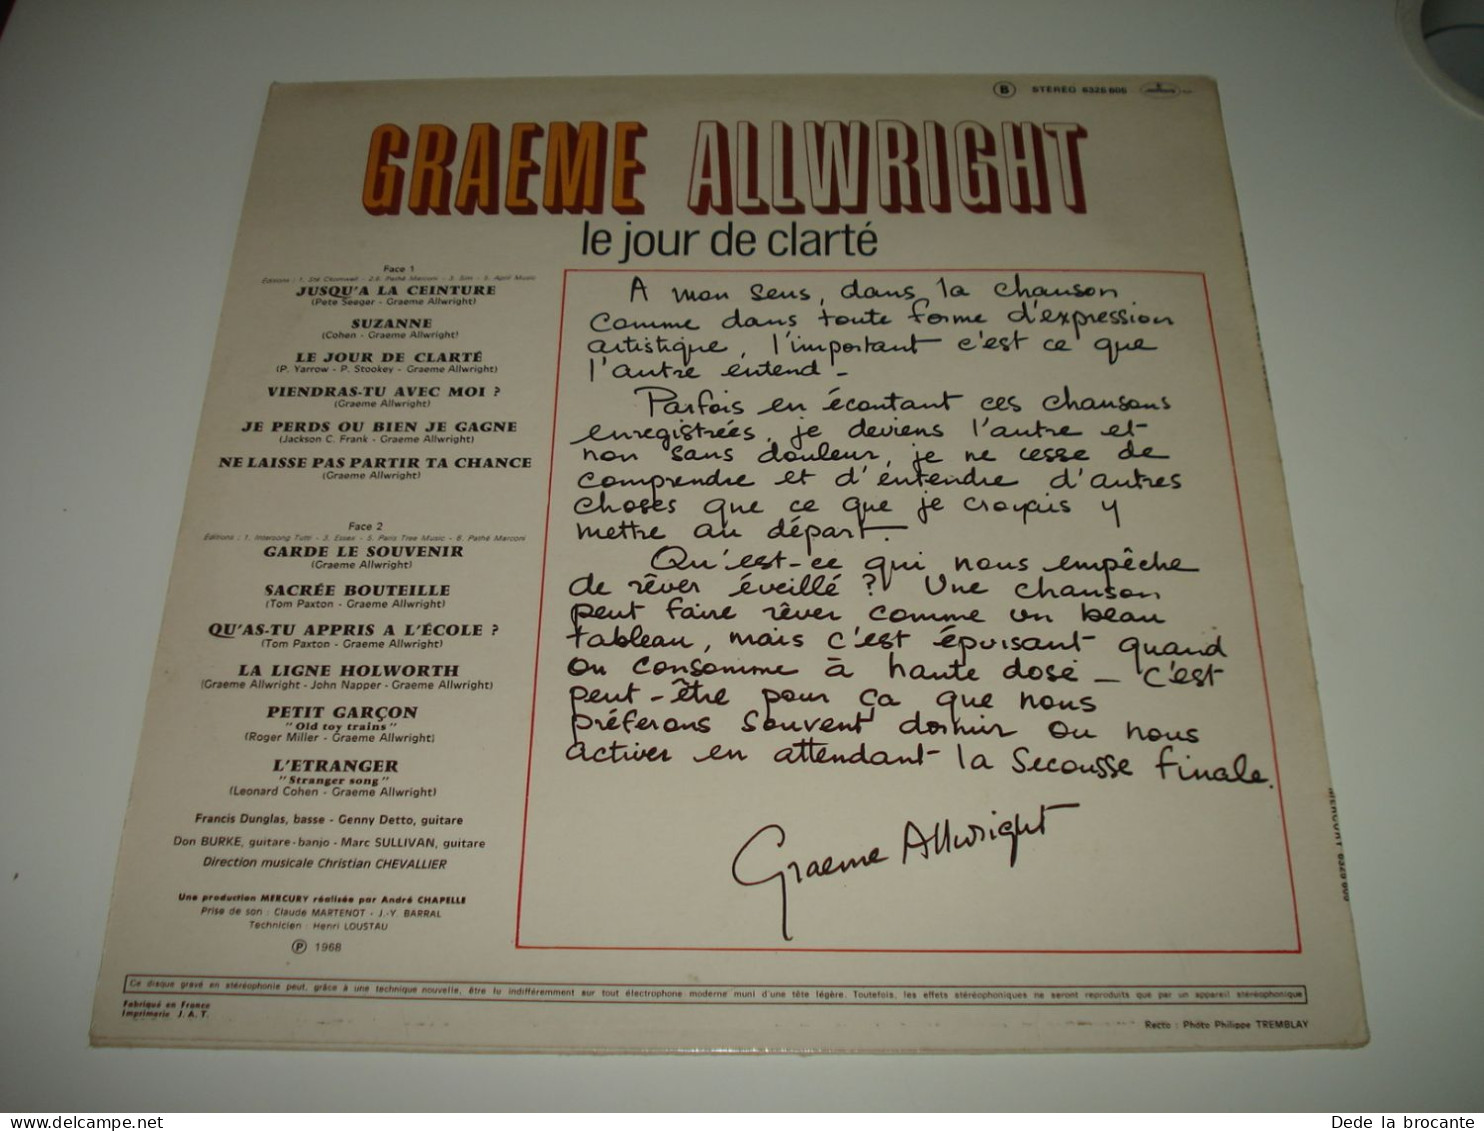 B STÉRÉO 6325 606
GRAEME ALLWRIGHT
le jour de clarté
Face 1
JUSQU'A LA CEINTURE
(Pete Seeger - Graeme Allwright)
SUZANNE
(Cohen - Graeme Allwright)
LE JOUR DE CLARTÉ
(P. Yarrow - P. Stookey - Graeme Allwright)
VIENDRAS-TU AVEC MOI ?
(Graeme Allwright)
JE PERDS OU BIEN JE GAGNE
(Jackson C. Frank - Graeme Allwright)
NE LAISSE PAS PARTIR TA CHANCE
(Graeme Allwright)
Face 2
Editions : 1. Intersong Tutti - 3. Essex - 5. Paris Tree Music - 6. Pathé Marconi
GARDE LE SOUVENIR
(Graeme Allwright)
SACRÉE BOUTEILLE
(Tom Paxton - Graeme Allwright)
QU'AS-TU APPRIS A L'ÉCOLE ?
(Tom Paxton - Graeme Allwright)
LA LIGNE HOLWORTH
(Graeme Allwright - John Napper - Graeme Allwright)
PETIT GARÇON
"Old toy trains"
(Roger Miller - Graeme Allwright)
L'ETRANGER
"Stranger song"
(Leonard Cohen - Graeme Allwright)
Francis Dunglas, basse - Genny Detto, guitare
Don BURKE, guitare-banjo - Marc SULLIVAN, guitare
Direction musicale Christian CHEVALLIER
Une production MERCURY réalisée par André CHAPELLE
Prise de son : Claude MARTENOT - J.-Y. BARRAL
Technicien : Henri LOUSTAU
℗ 1968
A mon sens, dans la chanson
comme dans toute forme d'expression
artistique, l'important c'est ce que
l'autre entend -
Parfois en écoutant ces chansons
enregistrées, je deviens l'autre et
non sans douleur, je ne cesse de
comprendre et d'entendre d'autres
choses que ce que je croyais y
mettre au départ.
Qu'est-ce qui nous empêche
de rêver éveillé ? Une chanson
peut faire rêver comme un beau
tableau, mais c'est épuisant quand
on consomme à haute dose - c'est
peut-être pour ça que nous
préferons souvent dormir ou nous
activer en attendant la Secousse finale.
Graeme Allwright
Ce disque gravé en stéréophonie peut, grâce à une technique nouvelle, être lu indifféremment sur tout électrophone moderne muni d'une tête légère. Toutefois, les effets stéréophoniques ne seront reproduits que par un appareil stéréophonique
Fabriqué en France
Imprimerie J. A. T.
Recto : Photo Philippe TREMBLAY
www.delcampe.net
Dede la brocante